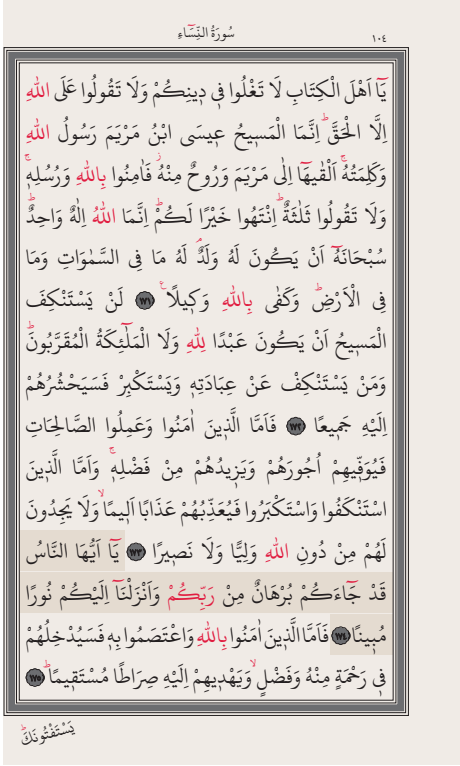 ١٠٤ سُورَةُ النِّسَٓاءِ
يَٓا اَهْلَ الْكِتَابِ لَا تَغْلُوا ف۪ي د۪ينِكُمْ وَلَا تَقُولُوا عَلَى اللّٰهِ
اِلَّا الْحَقَّۜ اِنَّمَا الْمَس۪يحُ ع۪يسَى ابْنُ مَرْيَمَ رَسُولُ اللّٰهِ
وَكَلِمَتُهُۚ اَلْقٰيهَٓا اِلٰى مَرْيَمَ وَرُوحٌ مِنْهُۘ فَاٰمِنُوا بِاللّٰهِ وَرُسُلِه۪ۚ
وَلَا تَقُولُوا ثَلٰثَةٌۜ اِنْتَهُوا خَيْرًا لَكُمْۜ اِنَّمَا اللّٰهُ اِلٰهٌ وَاحِدٌۜ
سُبْحَانَهُٓ اَنْ يَكُونَ لَهُ وَلَدٌۢ لَهُ مَا فِى السَّمٰوَاتِ وَمَا
فِى الْاَرْضِۜ وَكَفٰى بِاللّٰهِ وَك۪يلًا۟ ﴿١٧١﴾ لَنْ يَسْتَنْكِفَ
الْمَس۪يحُ اَنْ يَكُونَ عَبْدًا لِلّٰهِ وَلَا الْمَلٰٓئِكَةُ الْمُقَرَّبُونَۜ
وَمَنْ يَسْتَنْكِفْ عَنْ عِبَادَتِه۪ وَيَسْتَكْبِرْ فَسَيَحْشُرُهُمْ
اِلَيْهِ جَم۪يعًا ﴿١٧٢﴾ فَاَمَّا الَّذ۪ينَ اٰمَنُوا وَعَمِلُوا الصَّالِحَاتِ
فَيُوَفّ۪يهِمْ اُجُورَهُمْ وَيَز۪يدُهُمْ مِنْ فَضْلِه۪ۚ وَاَمَّا الَّذ۪ينَ
اسْتَنْكَفُوا وَاسْتَكْبَرُوا فَيُعَذِّبُهُمْ عَذَابًا اَل۪يمًاۙ وَلَا يَجِدُونَ
لَهُمْ مِنْ دُونِ اللّٰهِ وَلِيًّا وَلَا نَص۪يرًا ﴿١٧٣﴾ يَٓا اَيُّهَا النَّاسُ
قَدْ جَٓاءَكُمْ بُرْهَانٌ مِنْ رَبِّكُمْ وَاَنْزَلْنَٓا اِلَيْكُمْ نُورًا
مُب۪ينًا ﴿١٧٤﴾ فَاَمَّا الَّذ۪ينَ اٰمَنُوا بِاللّٰهِ وَاعْتَصَمُوا بِه۪ فَسَيُدْخِلُهُمْ
ف۪ي رَحْمَةٍ مِنْهُ وَفَضْلٍۙ وَيَهْد۪يهِمْ اِلَيْهِ صِرَاطًا مُسْتَق۪يمًاۜ ﴿١٧٥﴾
يَسْتَفْتُونَكَۜ